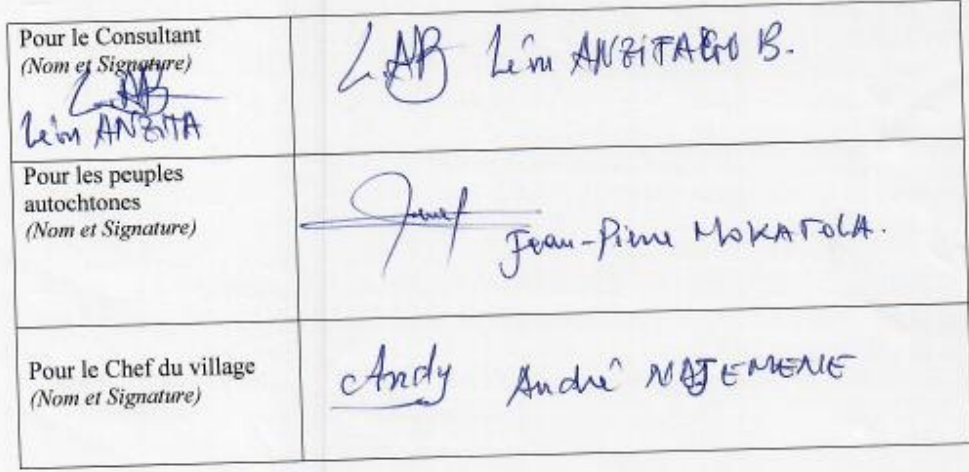 Pour le Consultant
(Nom et Signature)
LAB
Léon ANZITA
LAB Léon ANZITA B.
Pour les peuples
autochtones
(Nom et Signature)
Jean-Pierre MOKATOLA.
Pour le Chef du village
(Nom et Signature)
Andy André